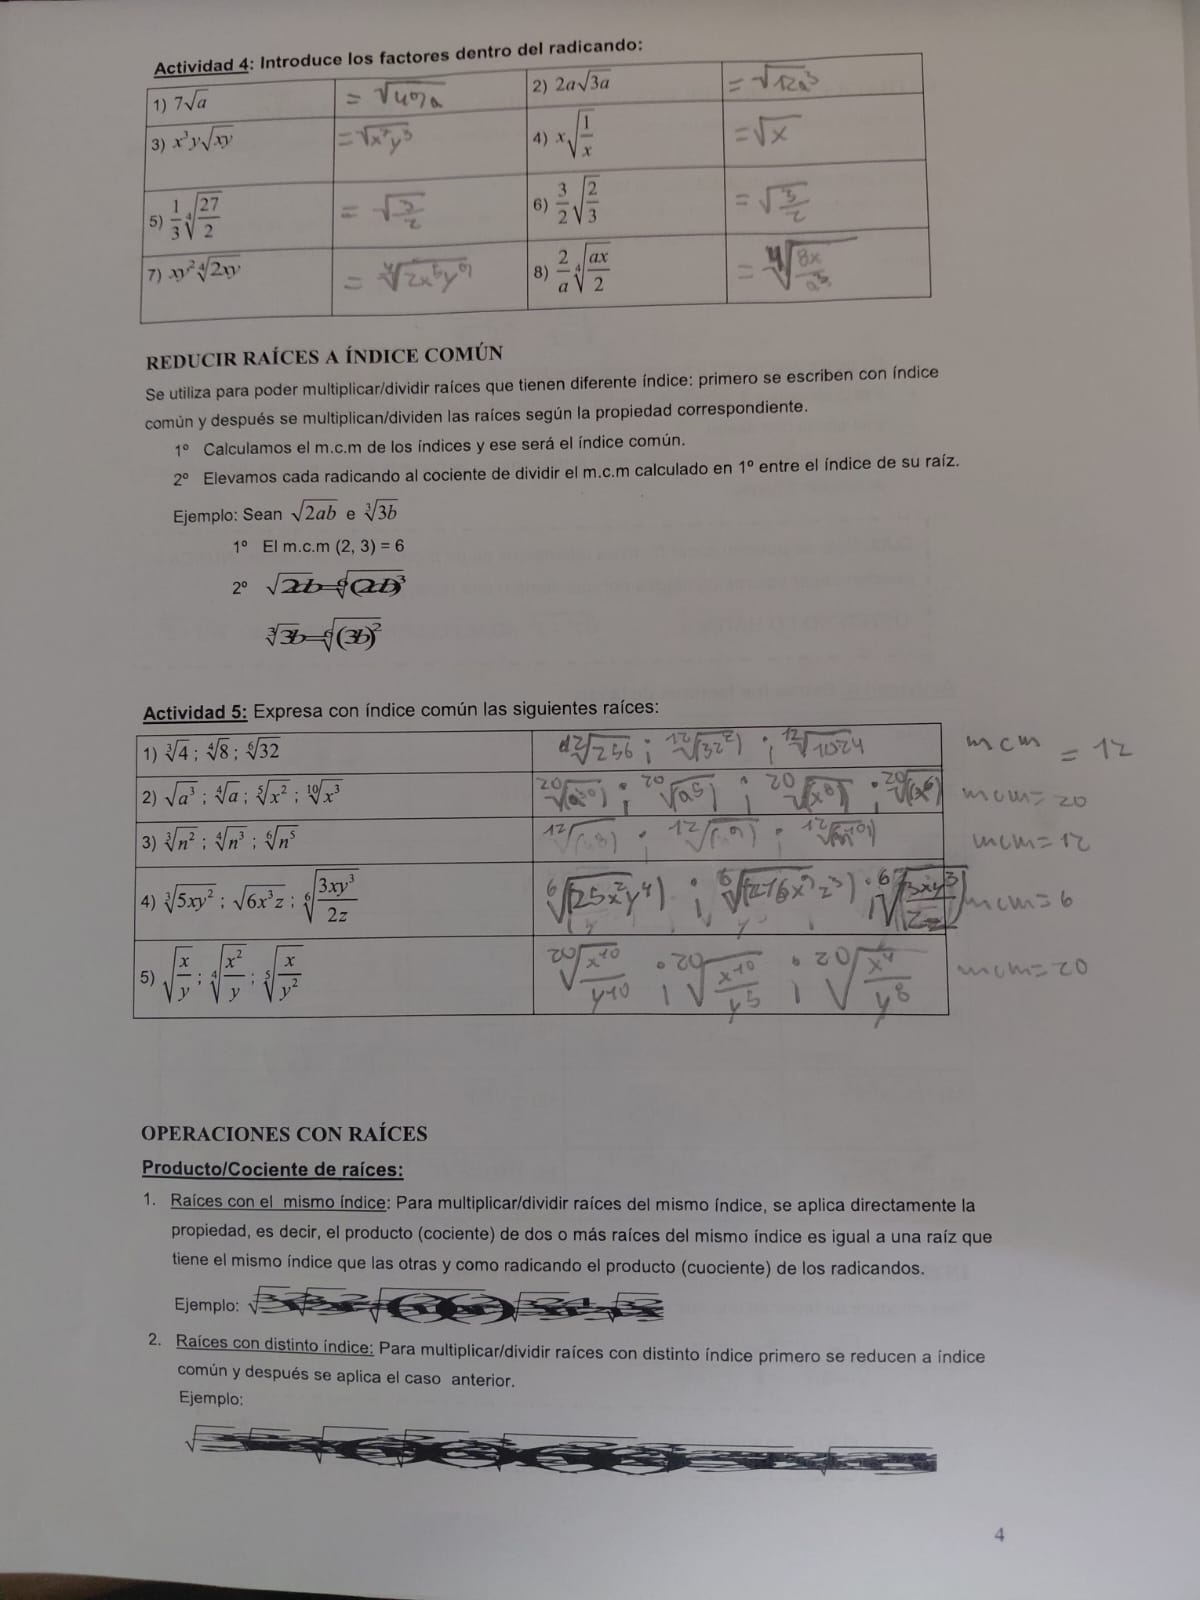 Actividad 4: Introduce los factores dentro del radicando:
1) 7√a = √49a 2) 2a√3a = √12a³
3) x³y√xy = √x⁷y³ 4) x√(1/x) = √x
5) 1/3 ⁴√(27/2) 6) 3/2 √(2/3) = √(3/2)
7) xy² ⁴√2xy = ⁴√2x⁵y⁹ 8) 2/a ⁴√(ax/2) = ⁴√(8x/a³)
REDUCIR RAÍCES A ÍNDICE COMÚN
Se utiliza para poder multiplicar/dividir raíces que tienen diferente índice: primero se escriben con índice
común y después se multiplican/dividen las raíces según la propiedad correspondiente.
1º Calculamos el m.c.m de los índices y ese será el índice común.
2º Elevamos cada radicando al cociente de dividir el m.c.m calculado en 1º entre el índice de su raíz.
Ejemplo: Sean √2ab e ³√3b
1º El m.c.m (2, 3) = 6
2º
³√3b = ⁶√(3b)²
Actividad 5: Expresa con índice común las siguientes raíces:
1) ³√4 ; ⁴√8 ; ⁶√32 ¹²√256 ; ; ¹²√1024 mcm = 12
2) √a³ ; ⁴√a ; ⁵√x² ; ¹⁰√x³ ; ²⁰√(a⁵) ; ²⁰√(x⁸) ; ²⁰√(x⁶) mcm=20
3) ³√n² ; ⁴√n³ ; ⁶√n⁵ mcm=12
4) ³√5xy² ; √6x³z ; ⁶√(3xy³/2z) ⁶√(25x²y⁴) ; ⁶√(216x⁹z³) ; ⁶√(3xy³/2z) mcm=6
5) √(x/y) ; ⁴√(x²/y) ; ⁵√(x/y²) ²⁰√(x¹⁰/y¹⁰) ; ²⁰√(x¹⁰/y⁵) ; ²⁰√(x⁴/y⁸) mcm=20
OPERACIONES CON RAÍCES
Producto/Cociente de raíces:
1. Raíces con el mismo índice: Para multiplicar/dividir raíces del mismo índice, se aplica directamente la
propiedad, es decir, el producto (cociente) de dos o más raíces del mismo índice es igual a una raíz que
tiene el mismo índice que las otras y como radicando el producto (cuociente) de los radicandos.
Ejemplo:
2. Raíces con distinto índice: Para multiplicar/dividir raíces con distinto índice primero se reducen a índice
común y después se aplica el caso anterior.
Ejemplo:
4